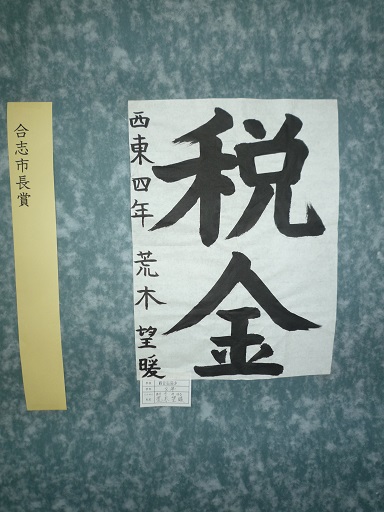 税金
西東四年 荒木望暖
合志市長賞